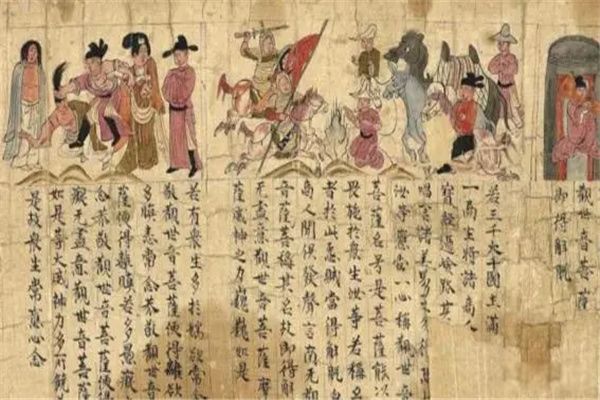 觀世音菩薩
即得解脫
若三千大千國土滿
一商主將諸商人
寶經過嶮路其
唱言諸善男子勿
汝等應當一心稱觀世音
菩薩名号是菩薩能以
畏施於衆生汝等若稱
者於此怨賊當得解脫
商人聞俱發聲言南无觀
音菩薩稱其名故即得解
无盡意觀世音菩薩摩
薩威神之力巍巍如是
若有衆生多於婬欲常念
敬觀世音菩薩便得離欲
多瞋恚常念恭敬觀世音
薩便得離瞋若多愚癡
念恭敬觀世音菩薩便得
癡无盡意觀世音菩薩
如是等大威神力多所饒
是故衆生常應心念